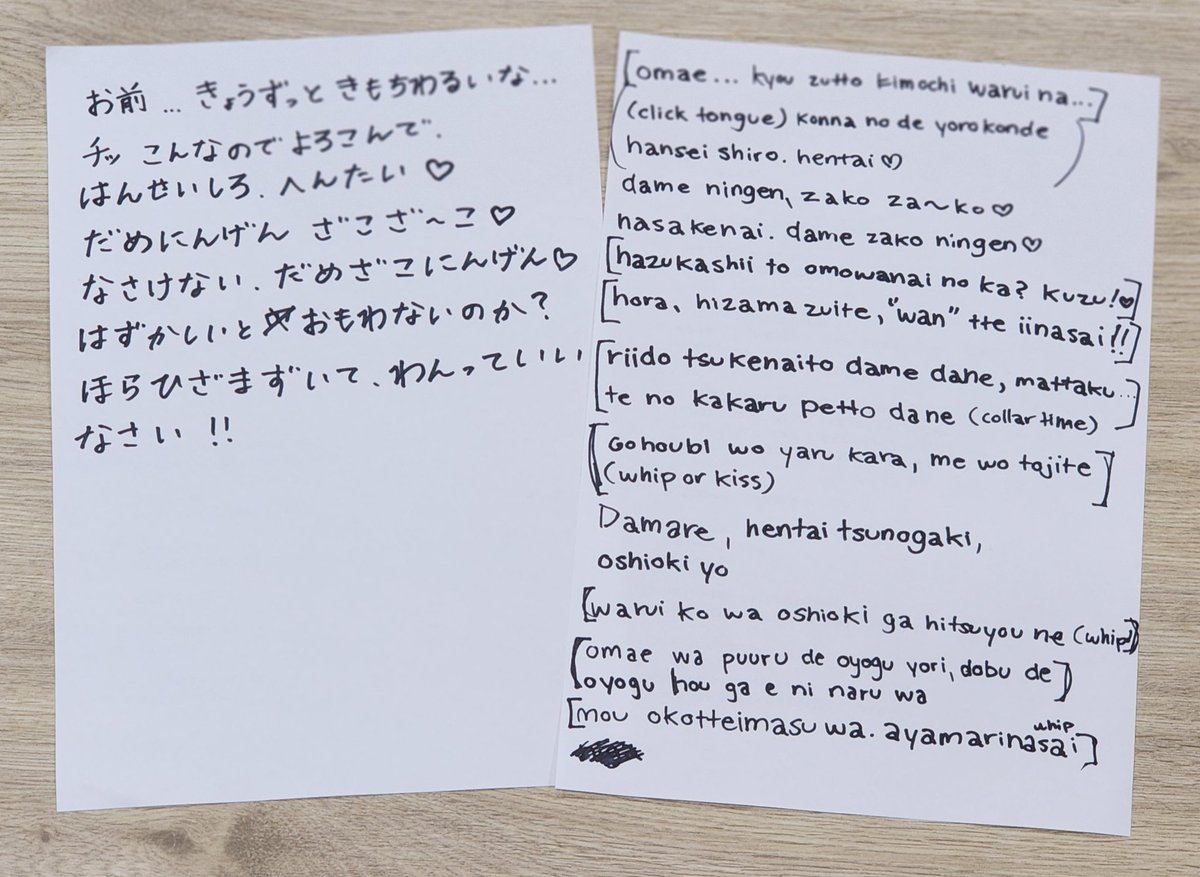 お前 … きょうずっと きもちわるいな…
チッ こんなので よろこんで.
はんせいしろ. へんたい ♡
だめにんげん ざこざ～こ♡
なさけない. だめざこにんげん♡
はずかしいと おもわないのか?
ほらひざまずいて、わんっていい
なさい !!
[omae... kyou zutto kimochi warui na...]
(click tongue) konna no de yorokonde
hansei shiro. hentai♡
dame ningen, zako za~ko♡
nasakenai. dame zako ningen♡
[hazukashii to omowanai no ka? kuzu!♥]
[hora, hizamazuite, "wan" tte iinasai!!]
[riido tsukenaito dame dane, mattaku...
te no kakaru petto dane (collar time)]
[Gohoubi wo yaru kara, me wo tojite
(whip or kiss)]
Damare, hentai tsunogaki,
oshioki yo
[warui ko wa oshioki ga hitsuyou ne (whip)]
[omae wa puuru de oyogu yori, dobu de
oyogu hou ga e ni naru wa]
[mou okotteimasu wa. ayamarinasai whip]